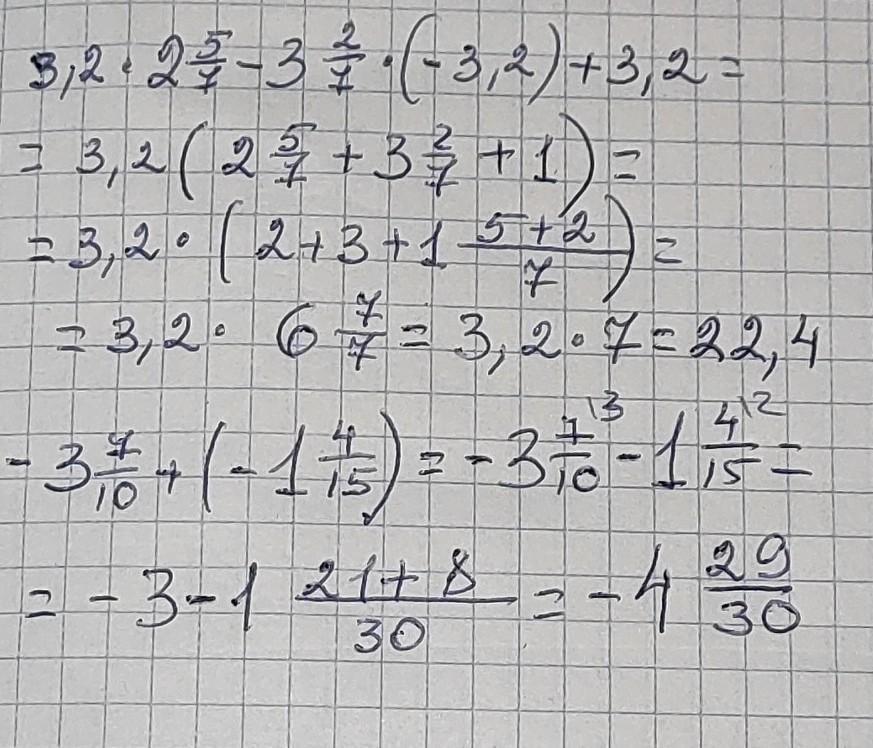 3,2 · 2 5/7 - 3 2/7 · (-3,2) + 3,2 =
= 3,2 ( 2 5/7 + 3 2/7 + 1 ) =
= 3,2 · ( 2 + 3 + 1 5+2/7 ) =
= 3,2 · 6 7/7 = 3,2 · 7 = 22,4
- 3 7/10 + ( - 1 4/15 ) = - 3 7\3/10 - 1 4\2/15 =
= - 3 - 1 21+8/30 = - 4 29/30